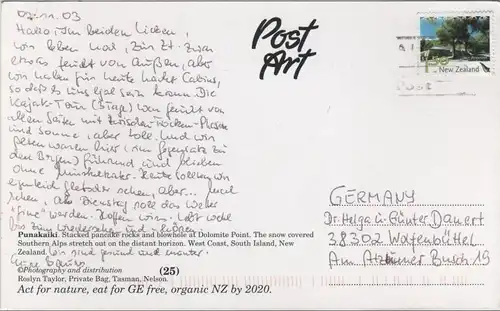 02.11.03
Hallo, Ihr beiden Lieben,
wir leben noch, zur Zt. zwar
etwas feucht von Außen, aber
wir haben für heute Nacht Cabins,
so daß es uns egal sein kann. Die
Kajak-Tour (3 Tage) war feucht von
allen Seiten mit Zwischen-Trocken-Phasen
und Sonne, aber toll. Und wir
waren hier (im Gegensatz zu
den ) führend und blieben
ohne Muskelkater. Heute sollten wir
eigentlich Gletscher sehen, aber... mal
sehen, ab Dienstag soll das Wetter
"fine" werden. Hoffen wir's. Lebt wohl
bis zum Wiedersehen und
Wir sind gesund und munter.
Post
Art
New Zealand
Punakaiki. Stacked pancake rocks and blowhole at Dolomite Point. The snow covered
Southern Alps stretch out on the distant horizon. West Coast, South Island, New
Zealand.
©Photography and distribution (25)
Roslyn Taylor, Private Bag, Tasman, Nelson.
Act for nature, eat for GE free, organic NZ by 2020.
GERMANY
Dr. Helga u. Günter Danert
38302 Wolfenbüttel
Am Busch 19